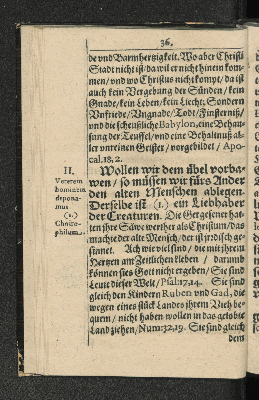 36.
de vnd Barmhertzigkeit. Wo aber Christi
Stadt nicht ist / da wil er nicht hinein kom-
men / vnd wo Christus nicht kompt / da ist
auch kein Vergebung der Sünden / kein
Gnade / kein Leben / kein Liecht. Sondern
Vnfriede / Vngnade / Todt / Finsterniß /
vnd die scheußliche Babylon, eine Behau-
sung der Teuffel / vnd eine Behaltnuß al-
ler vnreinen Geister / vorgebildet / Apo-
cal. 18, 2.
II.
Veterem
hominem
depona-
mus
(1.)
Choiro-
philum.
Wollen wir dem übel vorba-
wen / so müssen wir fürs Ander
den alten Menschen ablegen.
Derselbe ist (1.) ein Liebhaber
der Creaturen. Die Gergesener hat-
ten jhre Säwe werther als Christum / das
machte der alte Mensch / der ist jrrdisch ge-
sinnet. Ach wir viel sind / die mit jhrem
Hertzen am Zeitlichen kleben / darumb
können sies Gott nicht ergeben / Sie sind
Leute dieser Welt / Psal: 17, 14. Sie sind
gleich den Kindern Ruben vnd Gad, die
wegen eines stück Landes jhrem Vieh be-
quem / nicht haben wollen in das gelobte
Land ziehen / Num: 32, 19. Sie sind gleich
dem